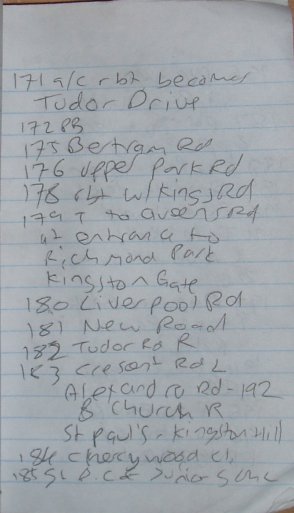 171 a/c rbt becomes
Tudor Drive
172 PB
175 Bertram Rd
176 Upper Park Rd
178 rbt w/Kings Rd
179 T to Queens Rd
at entrance to
Richmond Park
Kingston Gate
180 Liverpool Rd
181 New Road
182 Tudor Rd R
183 Cresent Rd L
Alexandra Rd - 192
B Church R
St Paul's - Kingston Hill
184 Cherrywood Cl
185 St Junior